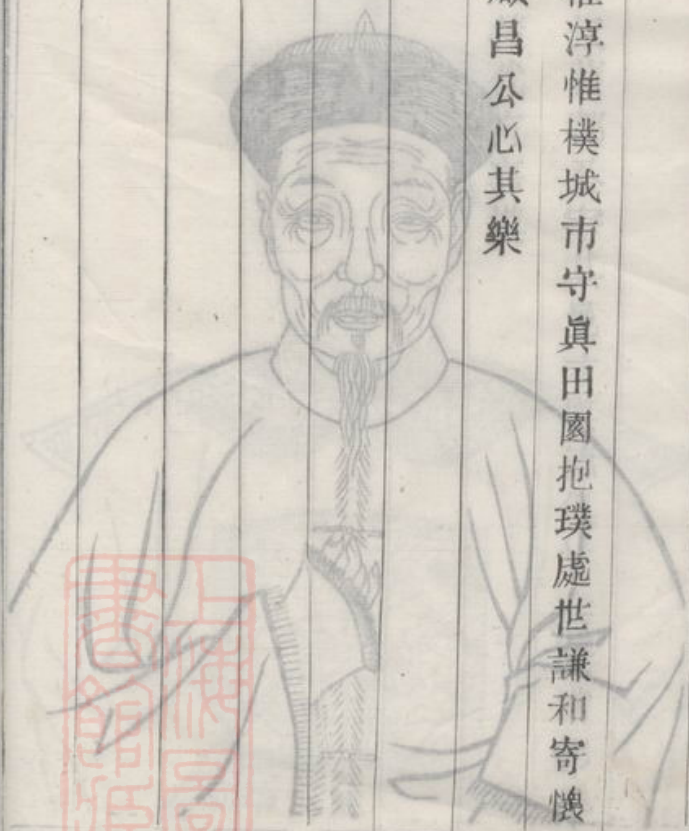 淳惟樸城市守眞田園抱璞處世謙和寄懷
昌公心其樂
上海圖
書館